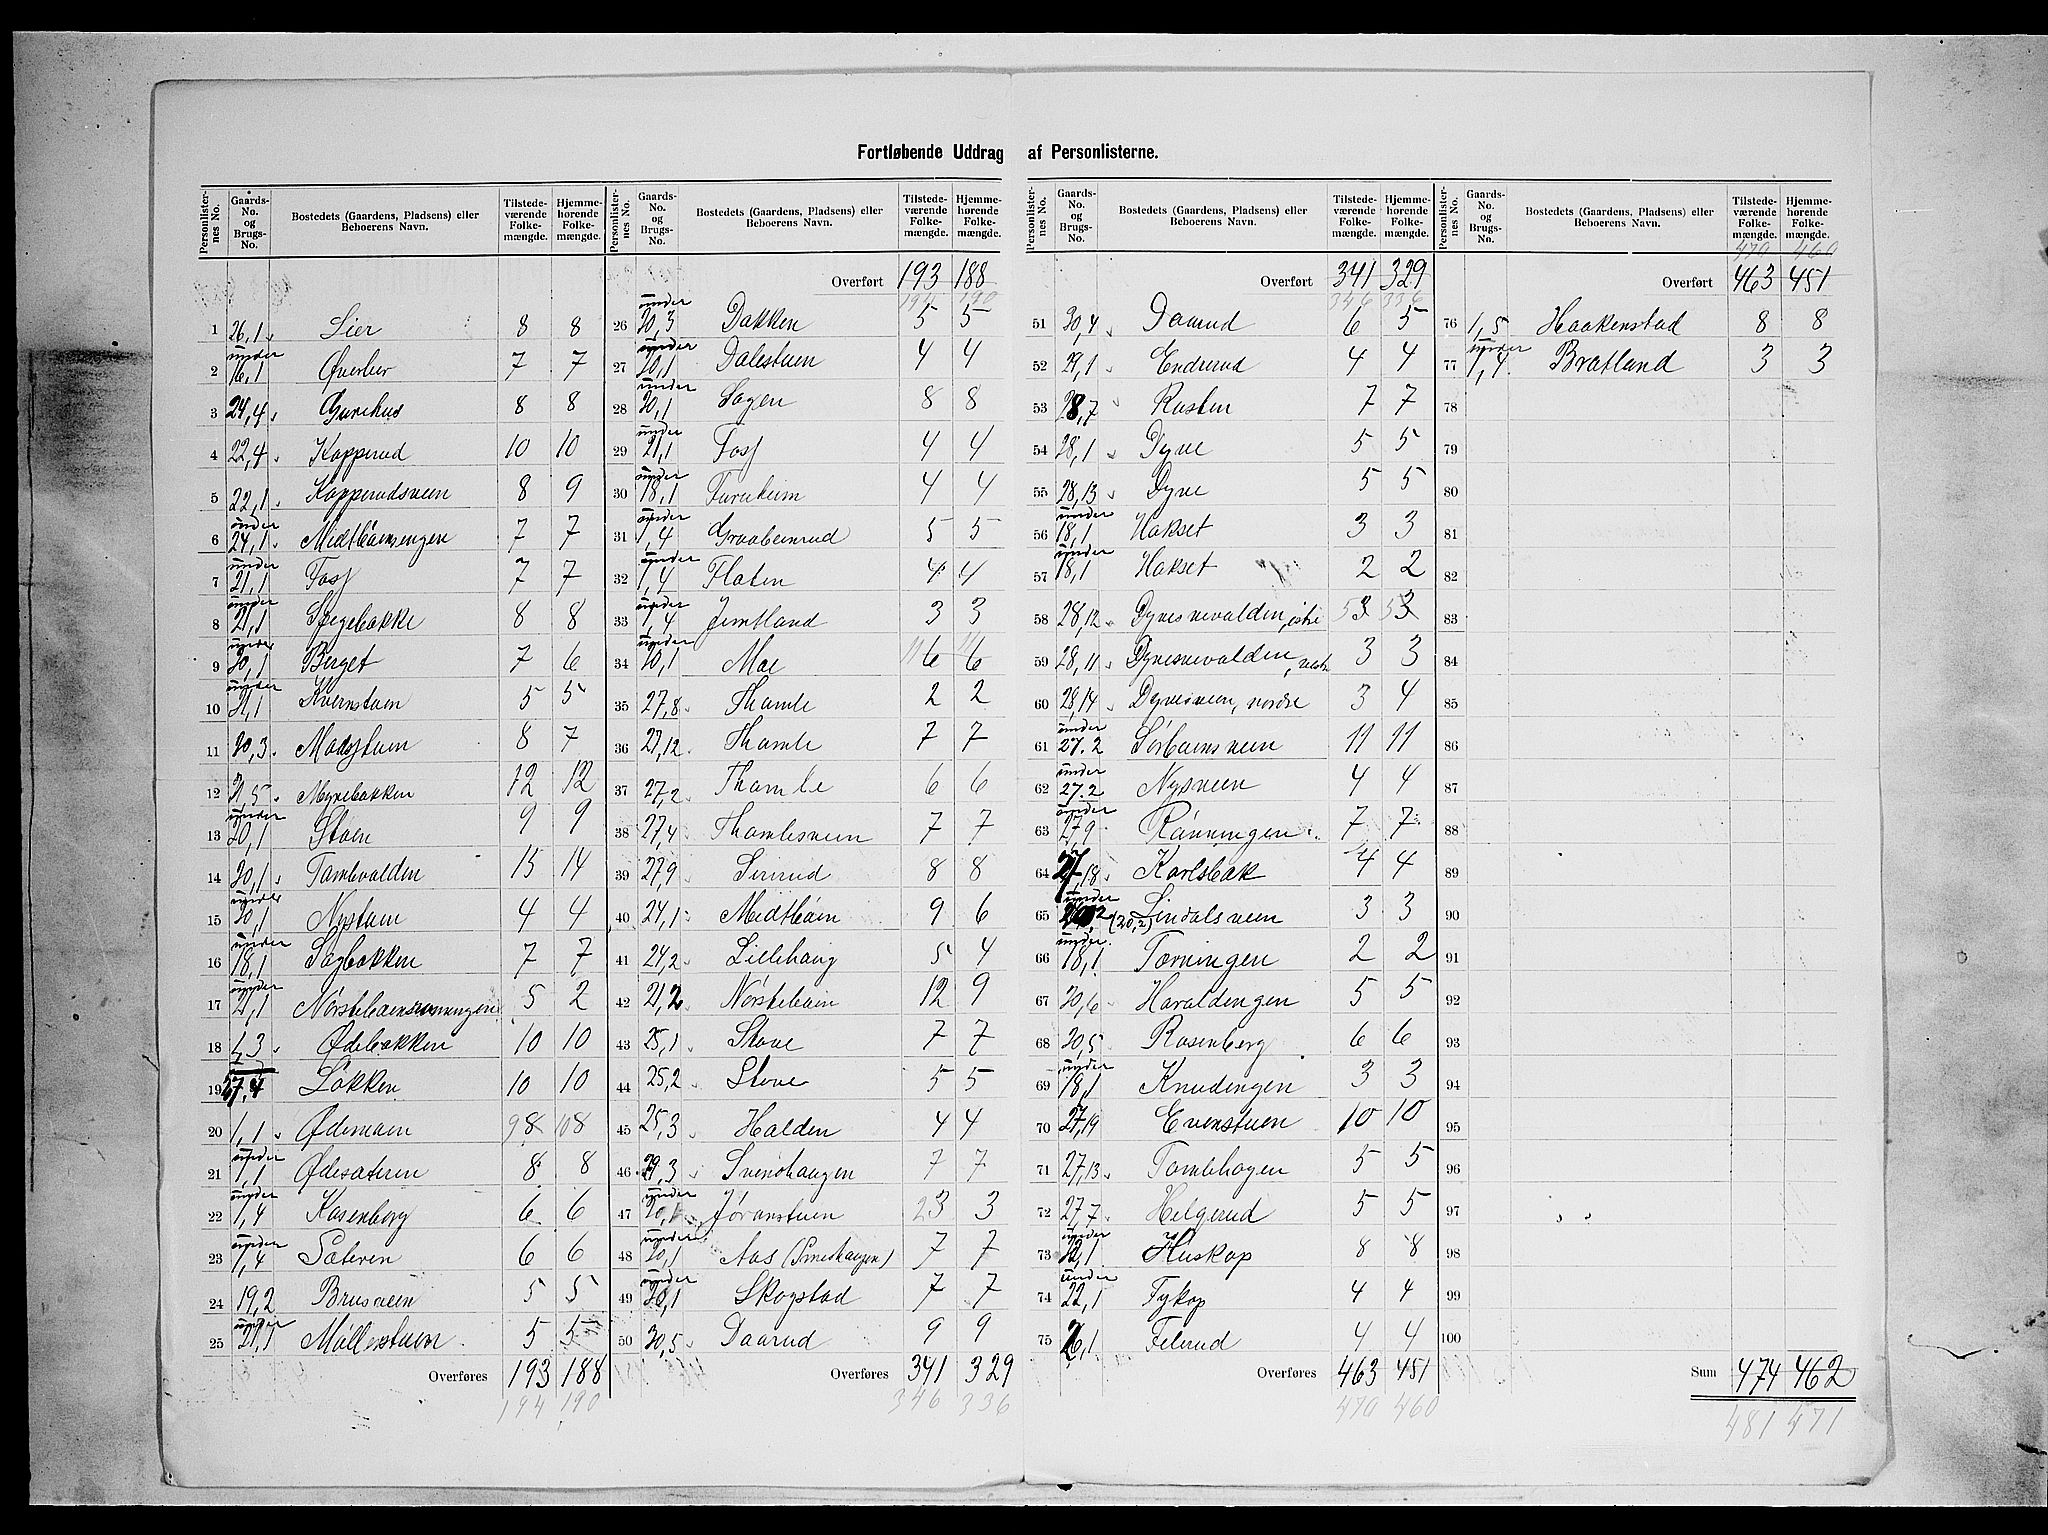 Fortløbende Uddrag af Personlisterne.
Personlisternes No. Gaards-No. og Brugs-No. Bostedets (Gaardens, Pladsens) eller Beboerens Navn. Tilstedeværende Folkemængde. Hjemmehørende Folkemængde.
1 26,1 Lier 8 8
2 under 16,1 Øverlier 7 7
3 24,4 Gunihus 8 8
4 22,4 Kopperud 10 10
5 22,1 Kopperudsveen 8 9
6 under 24,1 Midtbøensengen 7 7
7 under 21,1 Foss 7 7
8 under 21,1 Spegebakke 8 8
9 under 20,1 Berget 7 6
10 under 21,1 Kvernstuen 5 5
11 20,3 Madsstuen 8 7
12 21,5 Myrebakken 12 12
13 under 20,1 Støen 9 9
14 20,1 Tambvalden 15 14
15 under 20,1 Nystuen 4 4
16 under 18,1 Sagbakken 7 7
17 under 21,1 Nørstebøensrønningen 5 2
18 1,3 Ødebakken 10 10
19 27,4 Løkken 10 10
20 1,1 Ødemoen 9 8 10 8
21 under 1,1 Ødesæteren 8 8
22 under 1,4 Rosenborg 6 6
23 under 1,4 Sæteren 6 6
24 19,2 Brusveen 5 5
25 under 21,1 Møllerstuen 5 5
Overføres 193 188
194 190
Personlisternes No. Gaards-No. og Brugs-No. Bostedets (Gaardens, Pladsens) eller Beboerens Navn. Tilstedeværende Folkemængde. Hjemmehørende Folkemængde.
Overført 193 188
194 190
26 under 20,3 Bakken 5 5
27 under 20,1 Dalestuen 4 4
28 under 20,1 Hagen 8 8
29 under 21,1 Foss 4 4
30 under 18,1 Furuheim 4 4
31 under 1,4 Graabeinrud 5 5
32 under 1,4 Flaten 4 4
33 under 1,4 Jemtland 3 3
34 under 20,1 Moe 11 6 11 6
35 27,8 Thamle 2 2
36 27,12 Thomle 7 7
37 27,2 Thomle 6 6
38 27,4 Thomlesveen 7 7
39 27,9 Sinrud 8 8
40 24,1 Midtbøen 9 6
41 24,2 Lillehaug 5 4
42 21,2 Nørstebøen 12 9
43 25,1 Stove 7 7
44 25,2 Stove 5 5
45 25,3 Halden 4 4
46 29,3 Svendhaugen 7 7
47 under 20,1 Jøranstuen 2 3 3
48 under 20,1 Aas (Smedhaugen) 7 7
49 under 20,1 Skogstad 7 7
50 30,5 Daarud 9 9
Overføres 341 329
346 336
Personlisternes No. Gaards-No. og Brugs-No. Bostedets (Gaardens, Pladsens) eller Beboerens Navn. Tilstedeværende Folkemængde. Hjemmehørende Folkemængde.
Overført 341 329
346 336
51 30,4 Daarud 6 5
52 29,1 Endrerud 4 4
53 28,7 Rusten 7 7
54 28,1 Dyve 5 5
55 28,13 Dyve 5 5
56 under 18,1 Hokset 3 3
57 under 18,1 Hokset 2 2
58 28,12 Dyvesnevalden, østre 5 3 5 3
59 28,11 Dyvesnevalden, vestre 3 3
60 28,14 Dyvesveen, nordre 3 4
61 under 27.2 Sørbøensveen 11 11
62 under 27.2 Nysveen 4 4
63 under 27,9 Rønningen 7 7
64 27,18 Karlsbak 4 4
65 under (20,2) Lindalsveen 3 3
66 under 18,1 Tørningen 2 2
67 20,6 Haraldengen 5 5
68 20,5 Rosenberg 6 6
69 under 18,1 Knudengen 3 3
70 27,19 Evenstuen 10 10
71 27,13 Tomlehagen 5 5
72 27,7 Helgerud 5 5
73 under 22,1 Huskop 8 8
74 under 22,1 Fykop 4 4
75 26,1 Felerud 4 4
Overføres 463 451
470 460
Personlisternes No. Gaards-No. og Brugs-No. Bostedets (Gaardens, Pladsens) eller Beboerens Navn. Tilstedeværende Folkemængde. Hjemmehørende Folkemængde.
470 460
Overført 463 451
76 1,5 Haakenstad 8 8
77 under 1,4 Bratland 3 3
78
79
80
81
82
83
84
85
86
87
88
89
90
91
92
93
94
95
96
97
98
99
100
Sum 474 462
481 471